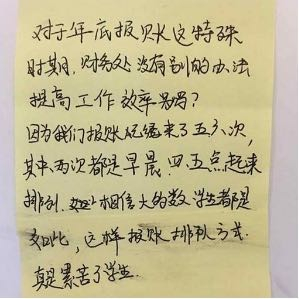 对于年底报账这特殊
时期，财务处没有别的办法
提高工作效率吗？
因为我们报账陆续来了五六次，
其中两次都是早晨四五点起来
排列，相信大的数学生都是
如此，这样报账排队方式
真是累苦了学生.